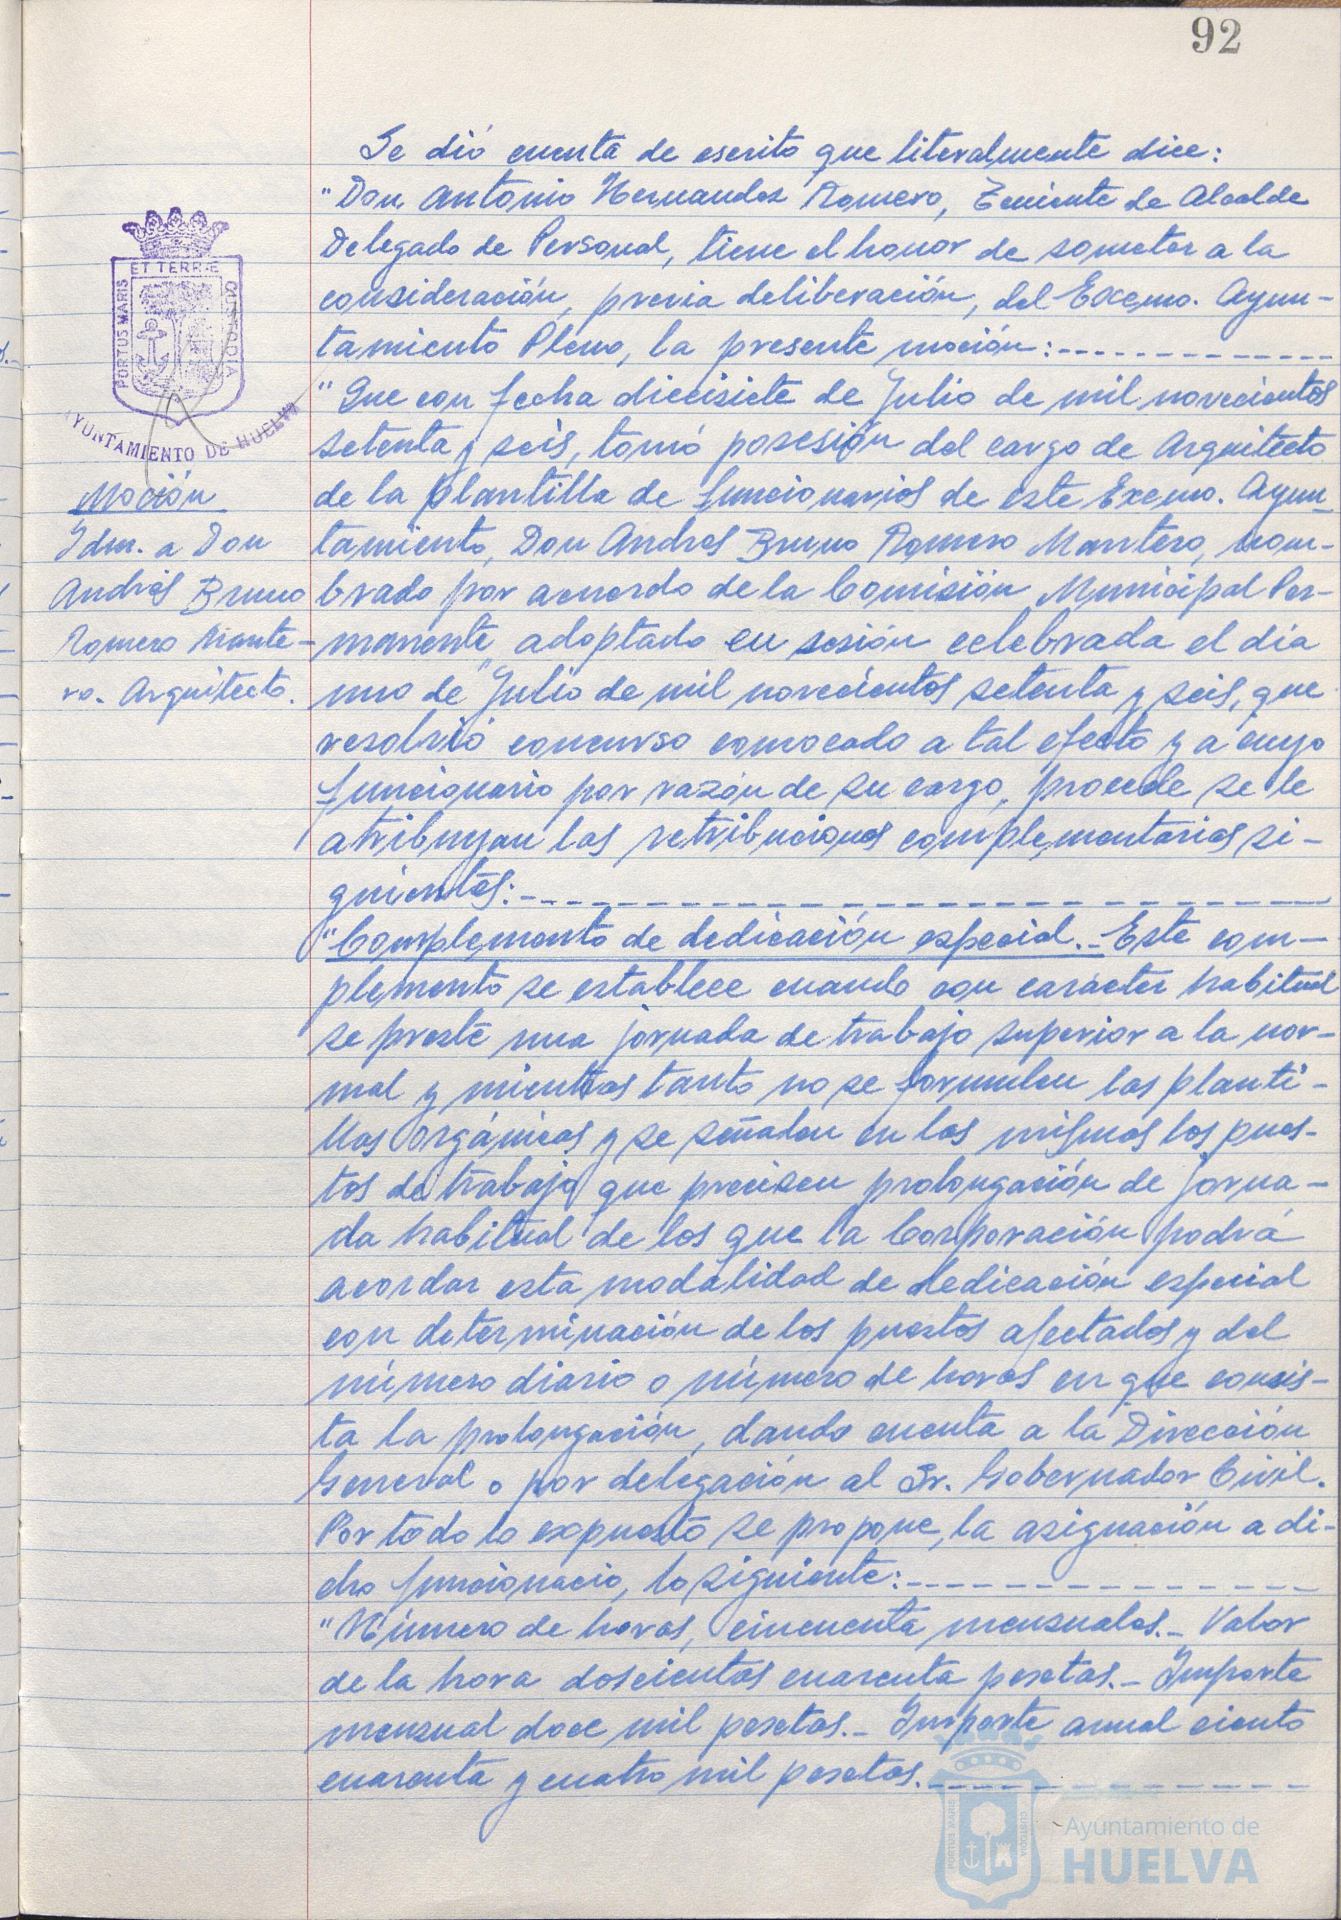 92
Se dió cuenta de escrito que literalmente dice:
"Don Antonio Hernandez Romero, Teniente de Alcalde
Delegado de Personal, tiene el honor de someter a la
consideración, previa deliberación, del Excmo. Ayun-
tamiento Pleno, la presente moción:
"Que con fecha diecisiete de Julio de mil novecientos
setenta y seis, tomó posesión del cargo de Arquitecto
de la plantilla de funcionarios de este Excmo. Ayun-
tamiento, Don Andres Bruno Romero Mantero, nom-
brado por acuerdo de la Comisión Municipal Per-
manente adoptado en sesión celebrada el día
uno de Julio de mil novecientos setenta y seis, que
resolvió concurso convocado a tal efecto y a cuyo
funcionario por razón de su cargo, procede se le
atribuyan las retribuciones complementarias si-
guientes:
"Complemento de dedicación especial.- Este com-
plemento se establece cuando con carácter habitual
se preste una jornada de trabajo superior a la nor-
mal y mientras tanto no se formulen las planti-
llas orgánicas y se señalen en las mismas los pues-
tos de trabajo que precisen prolongación de jorna-
da habitual de los que la Corporación podrá
acordar esta modalidad de dedicación especial
con determinación de los puestos afectados y del
número diario o número de horas en que consis-
ta la prolongación, dando cuenta a la Dirección
General o por delegación al Sr. Gobernador Civil.
Por todo lo expuesto se propone, la asignación a di-
cho funcionario, lo siguiente:
"Número de horas, cincuenta mensuales.- Valor
de la hora doscientas cuarenta pesetas.- Importe
mensual doce mil pesetas.- Importe anual ciento
cuarenta y cuatro mil pesetas.
PORTUS MARIS
ET TERRÆ
CUSTODIA
AYUNTAMIENTO DE HUELVA
Moción
Idm. a Don
Andrés Bruno
Romero Mante-
ro. Arquitecto.
PORTUS MARIS
CUSTODIA
Ayuntamiento de
HUELVA